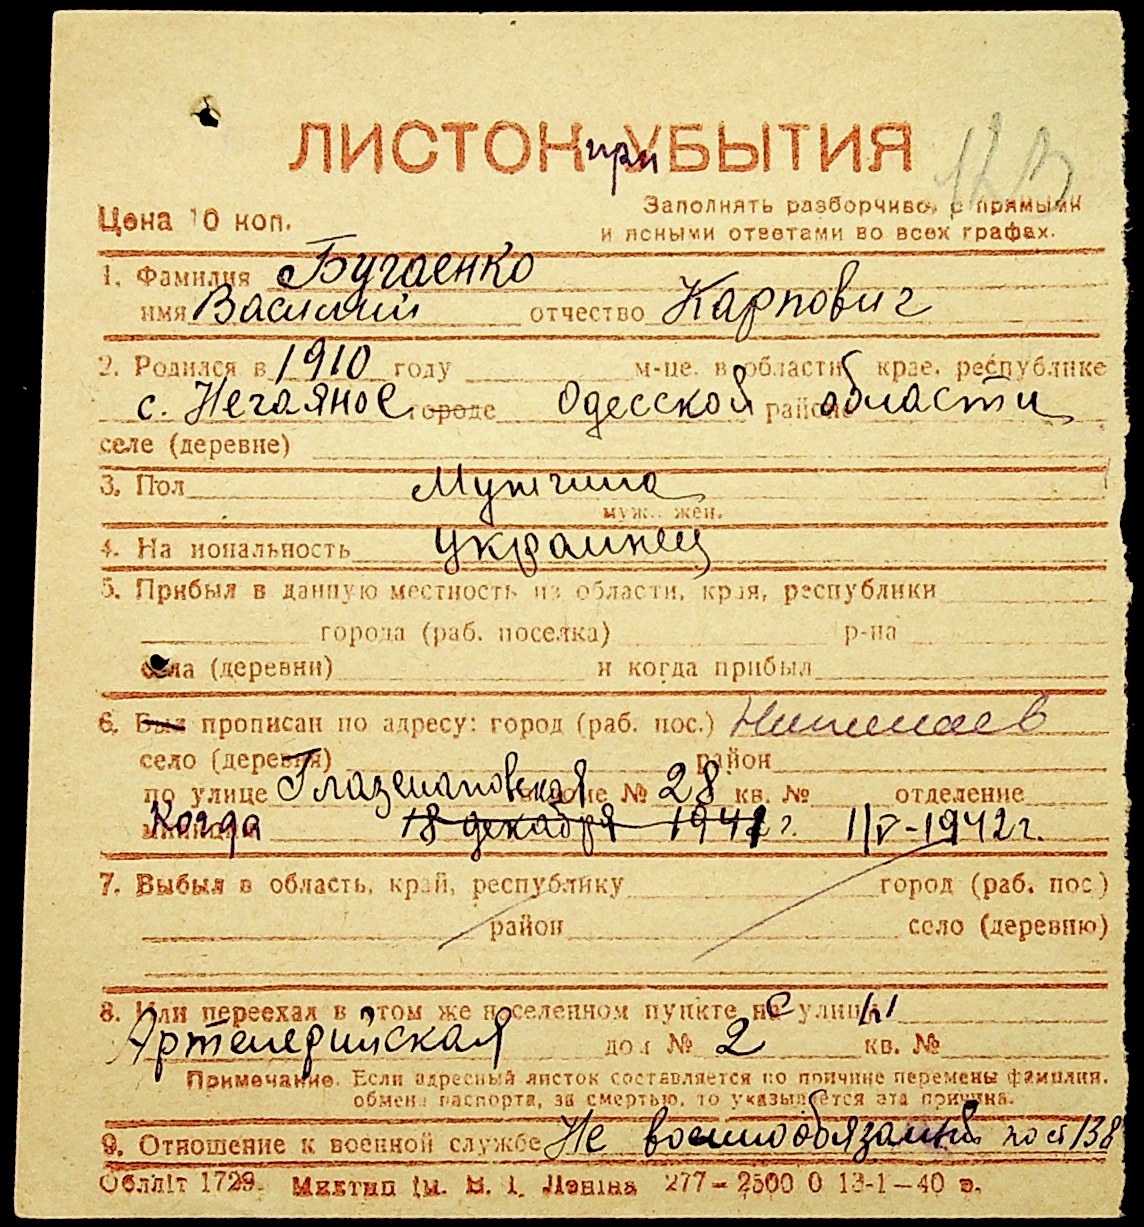 ЛИСТОК при УБЫТИЯ
123
Цена 10 коп.
Заполнять разборчиво, с прямыми
и ясными ответами во всех графах.
1. Фамилия Бугаенко
имя Василий отчество Карпович
2. Родился в 1910 году м-це. в области, крае, республике
с. Негаяное городе Одесской районе области
селе (деревне)
3. Пол Мужчина
муж., жен.
4. На иональность украинец
5. Прибыл в данную местность из области, края, республики
города (раб. поселка) р-на
села (деревни) и когда прибыл
6. Был прописан по адресу: город (раб. пос.) Николаев
село (деревня) район
по улице Глазенаповская № 28 кв. № отделение
Когда 18 декабря 1941 г. 1/V-1942 г.
7. Выбыл в область, край, республику город (раб. пос)
район село (деревню)
8. Или переехал в этом же населенном пункте на с улицы
Артелерийская дом № 2 кв. №
Примечание. Если адресный листок составляется по причине перемены фамилии,
обмена паспорта, за смертью, то указывается эта причина.
9. Отношение к военной службе Не военнообязаный по ст 138
Обллiт 1729. Миктип iм. В. I. Ленiна 277–2500 0 13-1–40 р.